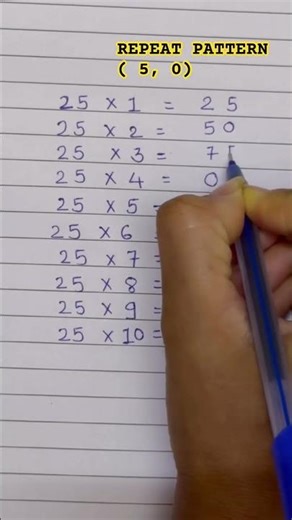 REPEAT PATTERN
( 5, 0)
25 × 1 = 25
25 × 2 = 50
25 × 3 = 7
25 × 4 = 0
25 × 5 =
25 × 6 =
25 × 7 =
25 × 8 =
25 × 9 =
25 × 10 =